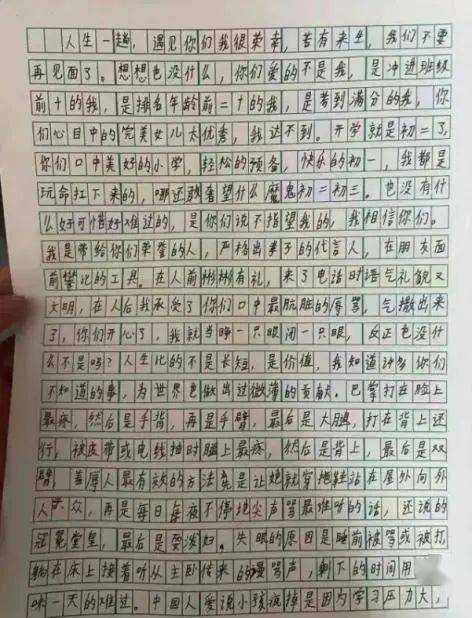 人生一趟，遇见你们我很荣幸，若有来生，我们不要
再见面了。想想也没什么，你们爱的不是我，是冲进班级
前十的我，是排名年龄前二十的我，是考到满分的我，你
们心目中的完美女儿太优秀，我达不到。开学就是初二了，
你们口中美好的小学，轻松的预备，快乐的初一，我都是
玩命扛下来的，哪还敢奢望什么魔鬼初二初三。也没有什
么好可惜好难过的，是你们说不指望我的，我相信你们。
我是带给你们荣誉的人，严格出事子的代言人，在朋友面
前攀比的工具。在人前彬彬有礼，来了电话时语气礼貌又
文明，在人后我承受了你们口中最肮脏的辱骂，气撒出来
了，你们开心了，我就当睁一只眼闭一只眼，反正也没什
么不是吗？人生比的不是长短，是价值，我知道许多你们
不知道的事，为世界也做出过微薄的贡献。巴掌打在脸上
最疼，然后是手背，再是手臂，最后是大腿，打在背上还
行，被皮带或电线抽时腿上最疼，然后是背上，最后是双
臂，羞辱人最有效的方法莫是让她就穿拖鞋站在屋外向外
人 众，再是每日每夜不停地尖声骂最难听的话，还说的
冠冕堂皇，最后是耍泼妇。失眠的原因是睡前被骂或被打
躺在床上接着听从主卧传来的谩骂声，剩下的时间用
一天的难过。中国人爱说小孩疯掉是因为学习压力大，